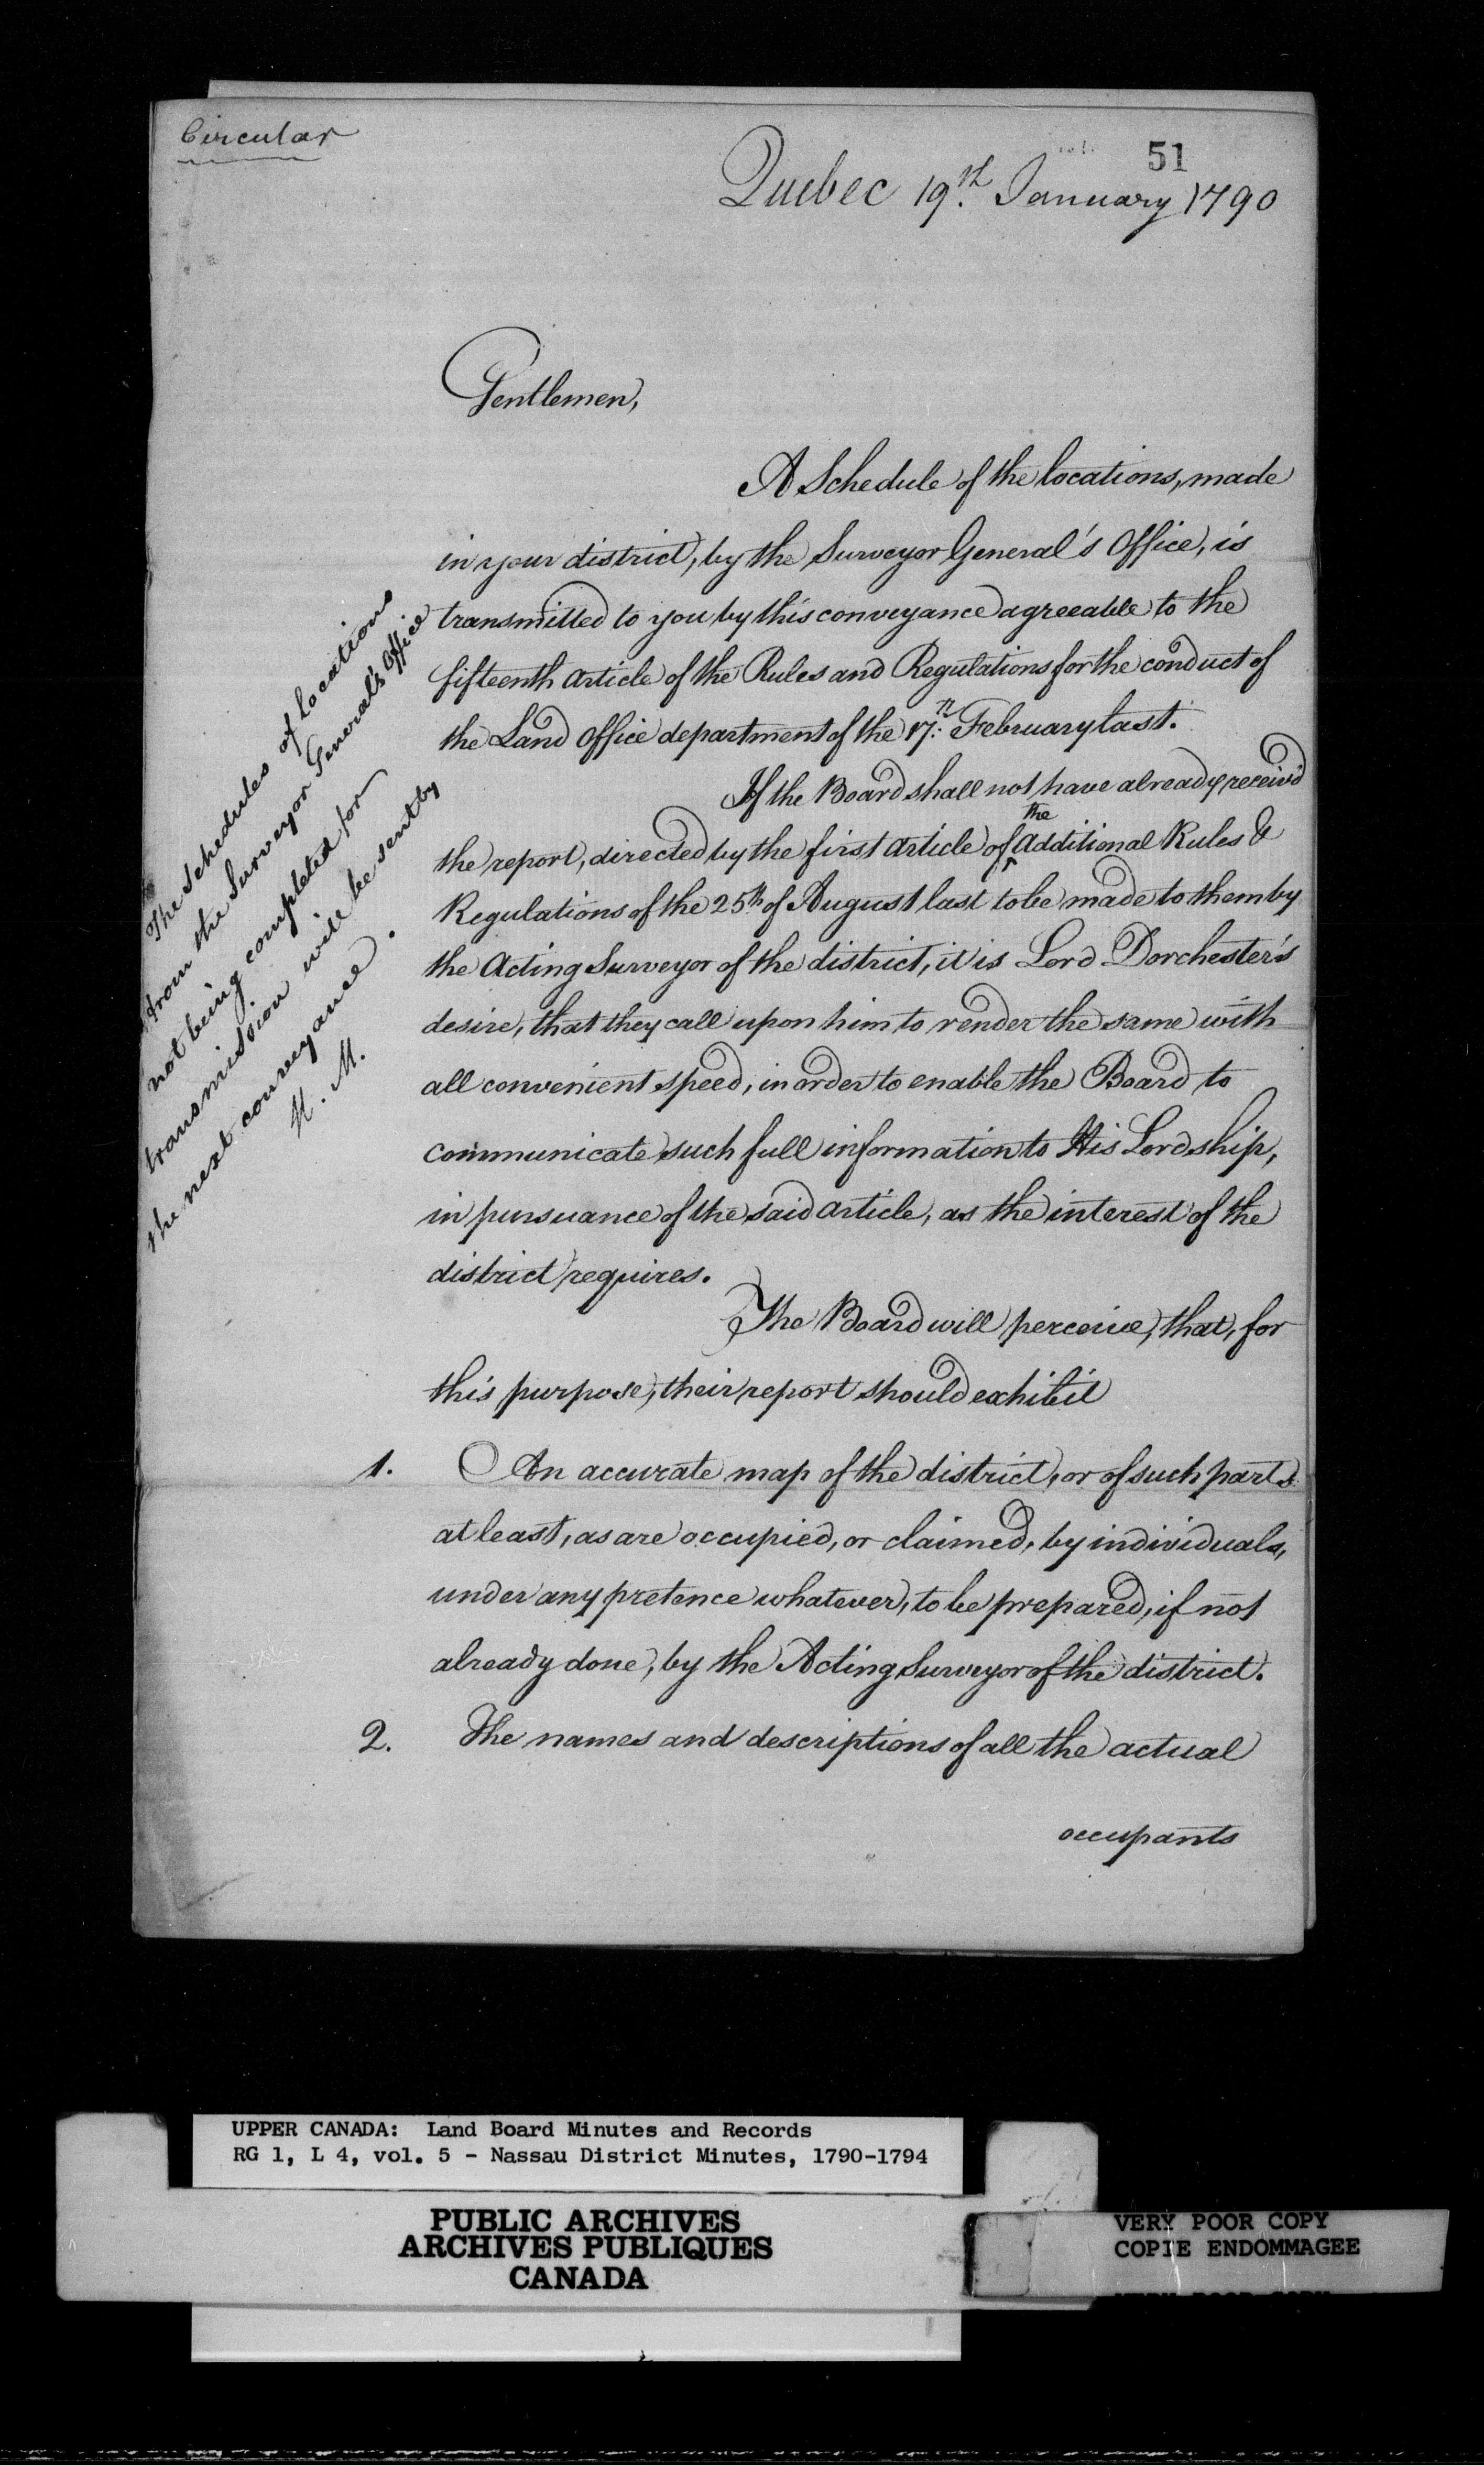 Circular
51
Quebec 19th. January 1790
Gentlemen,
A Schedule of the locations, made
in your district, by the Surveyor General's Office, is
transmitted to you by this conveyance agreeable to the
fifteenth article of the Rules and Regulations for the conduct of
the Land Office department of the 17th: February last.
If the Board shall not have already receiv'd
the report, directed by the first article of the additional Rules &
Regulations of the 25th. of August last to be made to them by
the Acting Surveyor of the district, it is Lord Dorchester's
desire, that they call upon him to render the same with
all convenient speed, in order to enable the Board to
communicate such full information to His Lordship,
in pursuance of the said article, as the interest of the
district requires.
The Board will perceive, that, for
this purpose, their report should exhibit
1. An accurate map of the district, or of such parts
at least, as are occupied, or claimed, by individuals,
under any pretence whatever, to be prepared, if not
already done, by the Acting Surveyor of the district.
2. The names and descriptions of all the actual
occupants
The Schedules of Locations
from the Surveyor General's Office
not being completed for
transmission will be sent by
the next conveyance.
H. M.
UPPER CANADA: Land Board Minutes and Records
RG 1, L 4, vol. 5 - Nassau District Minutes, 1790-1794
PUBLIC ARCHIVES
ARCHIVES PUBLIQUES
CANADA
VERY POOR COPY
COPIE ENDOMMAGEE
VERY POOR COPY